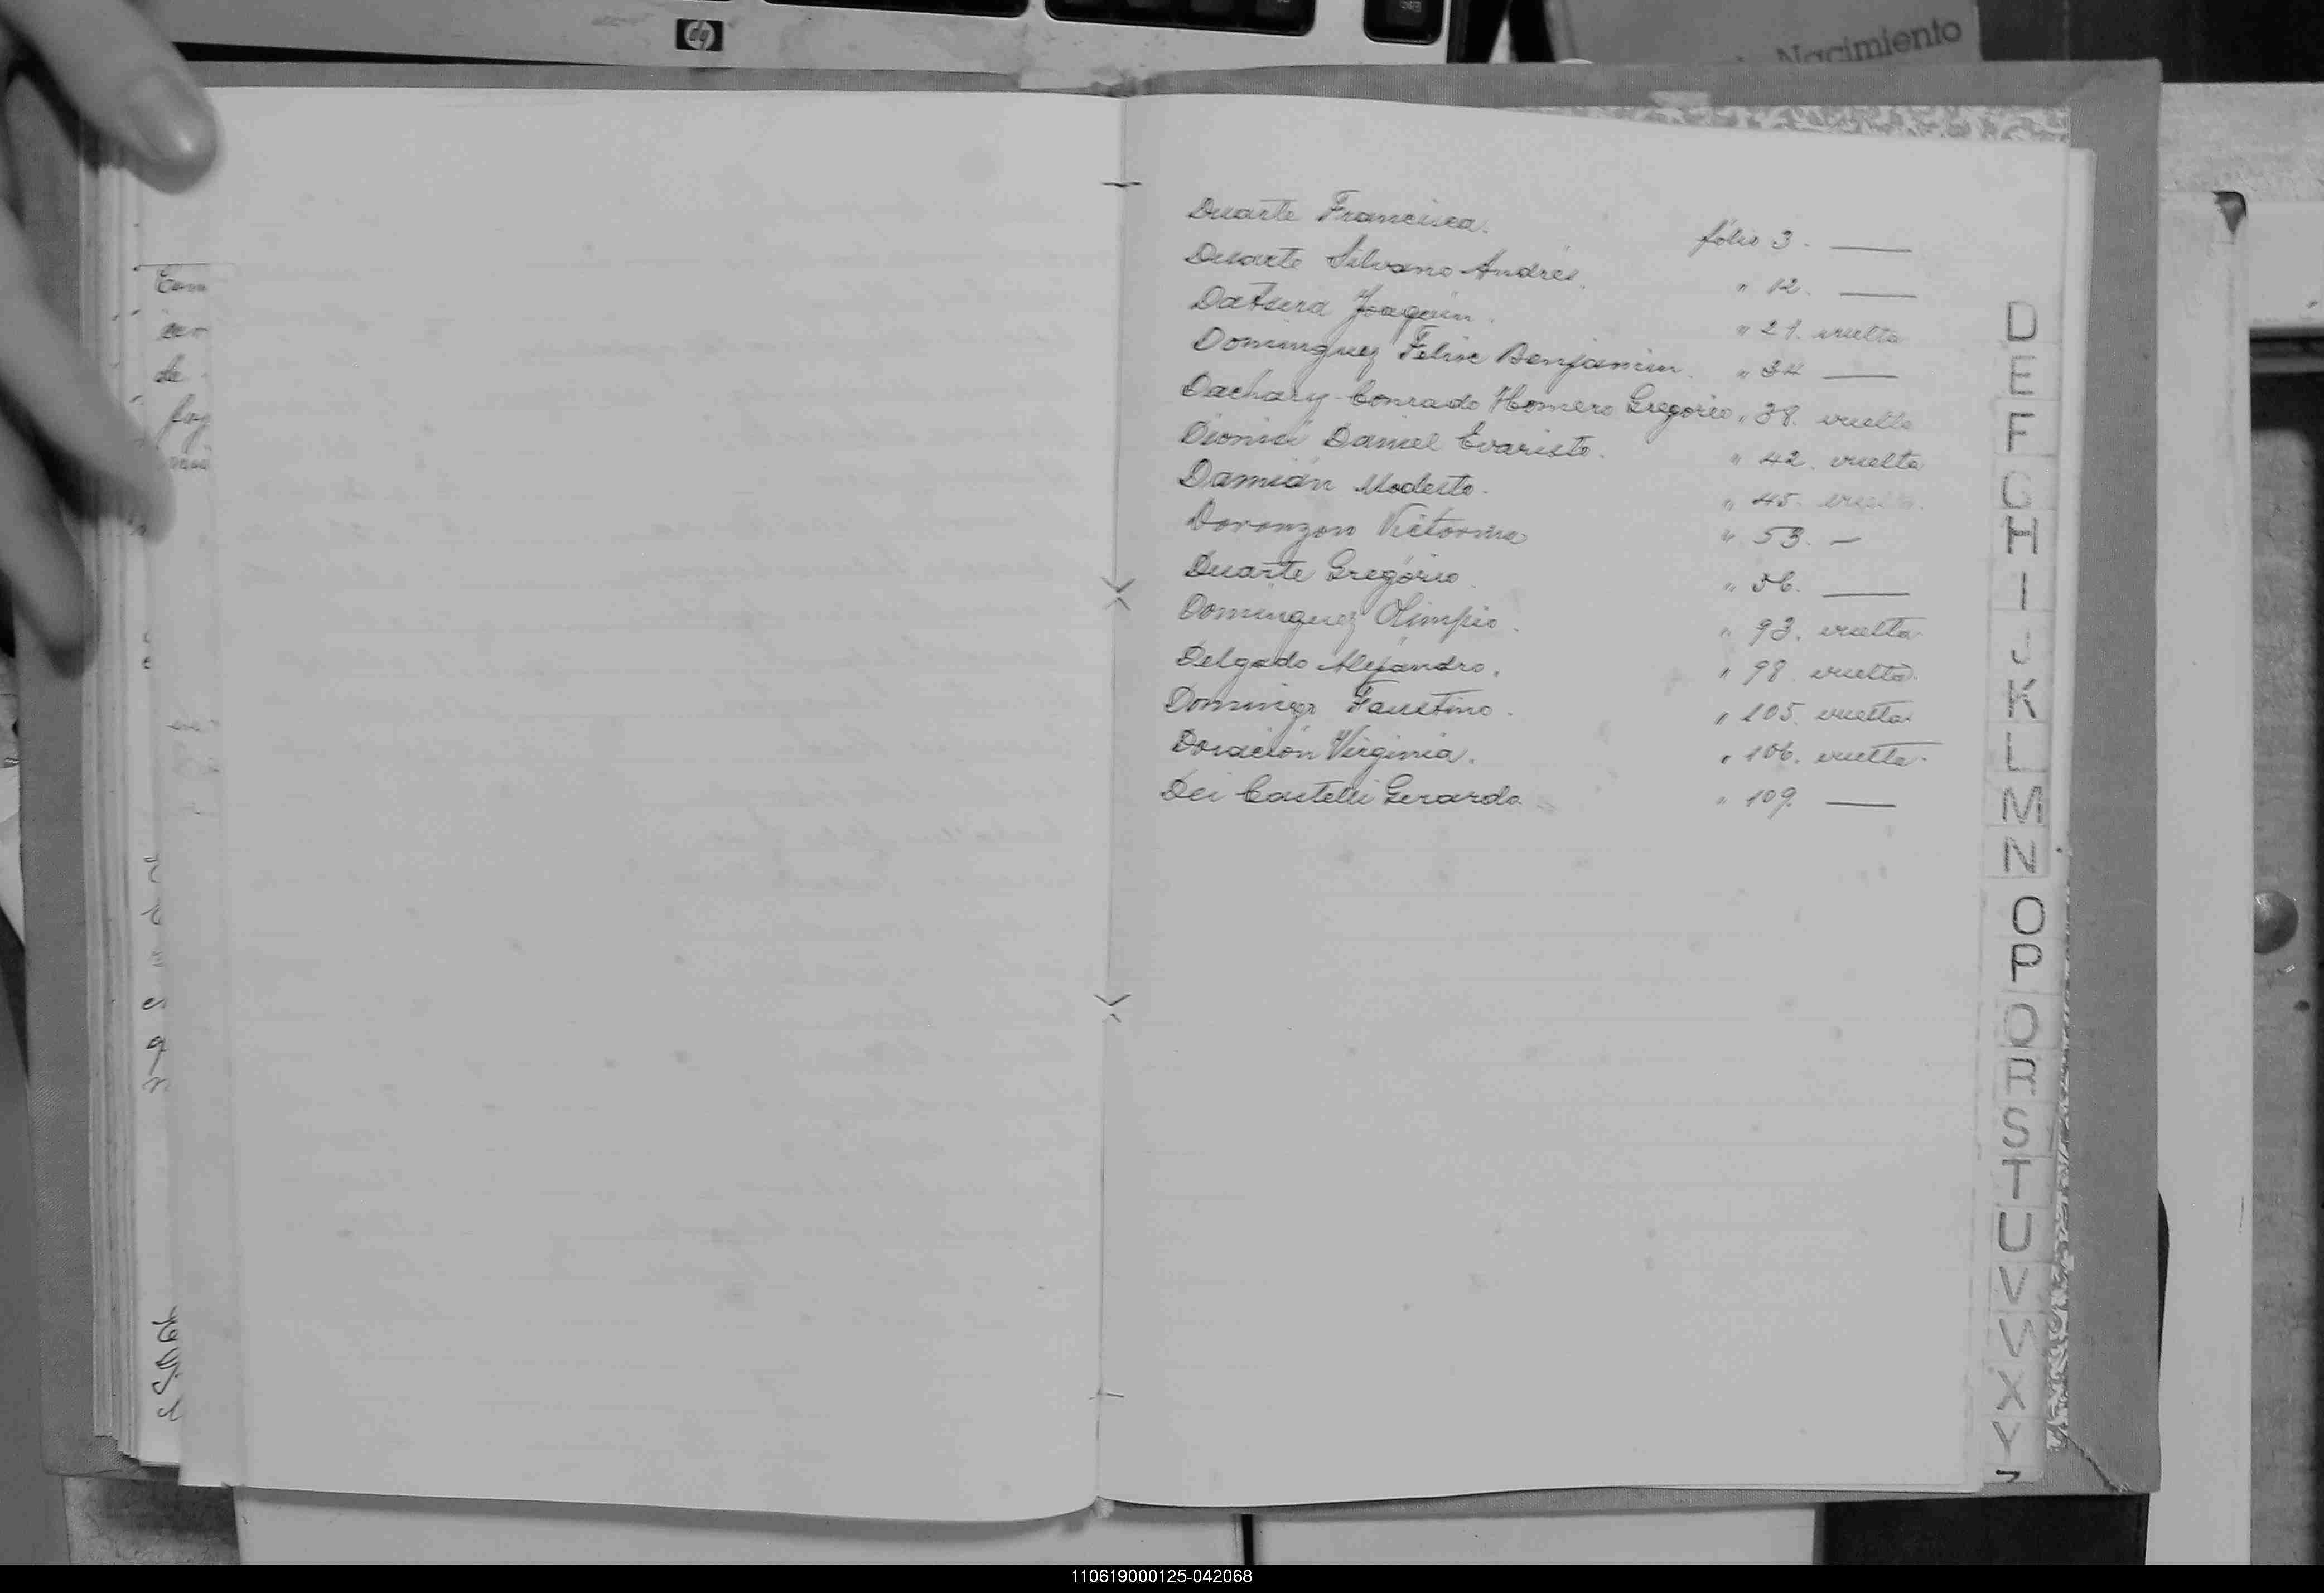 hp
Nacimiento
Duarte Francisca. folio 3. ——
Duarte Silvano Andrés. " 12. ——
Datsira Joaquin. " 21. vuelta
Dominguez Felix Benjamin. " 34 ——
Dachary Conrado Homero Gregorio " 38. vuelta
Dionisi Daniel Evaristo. " 42. vuelta
Damián Modesto. " 45. vuelta.
Doronzon Victorina " 53. —
Duarte Gregorio. " 56. ——
Dominguez Olimpio. " 93. vuelta.
Delgado Alejandro. " 98. vuelta.
Domingo Faustino. " 105. vuelta.
Doración Virginia. " 106. vuelta.
Dei Castelli Gerardo. " 109. ——
D
E
F
G
H
I
J
K
L
M
N
O
P
Q
R
S
T
U
V
X
Y
110619000125-042068